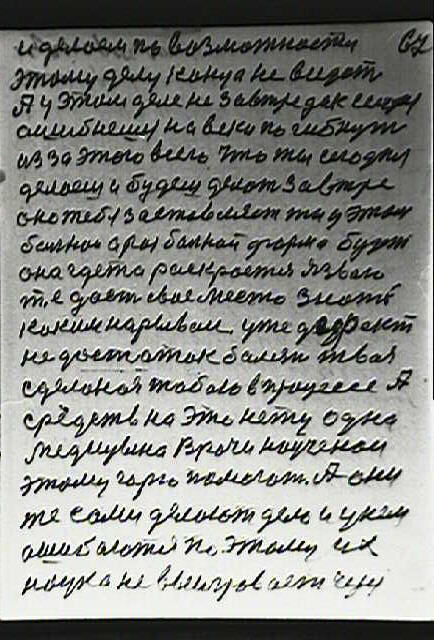 и делаем по возможности 67
этому делу конца не видать
А у этом деле не завтре дак
на веки погибнут
из за этого всего что ты сегодня
делаеш и будеш делат завтре
оно тебя заставляет ты у этом
болной форма будет
она где то раскроется язвою
т.е дает свое место знать
каким нарывам уже дефект
не достаток болезн твоя
сделоная тобою в процесе А
средств на это нету одна
медицына врачи наученаи
этому горю помогат. А они
те сами делают дело и у нем
ошибаются по этому их
наука не